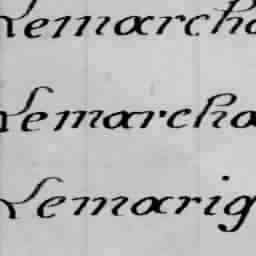 Lemarcha
Lemarcha
Lemarig